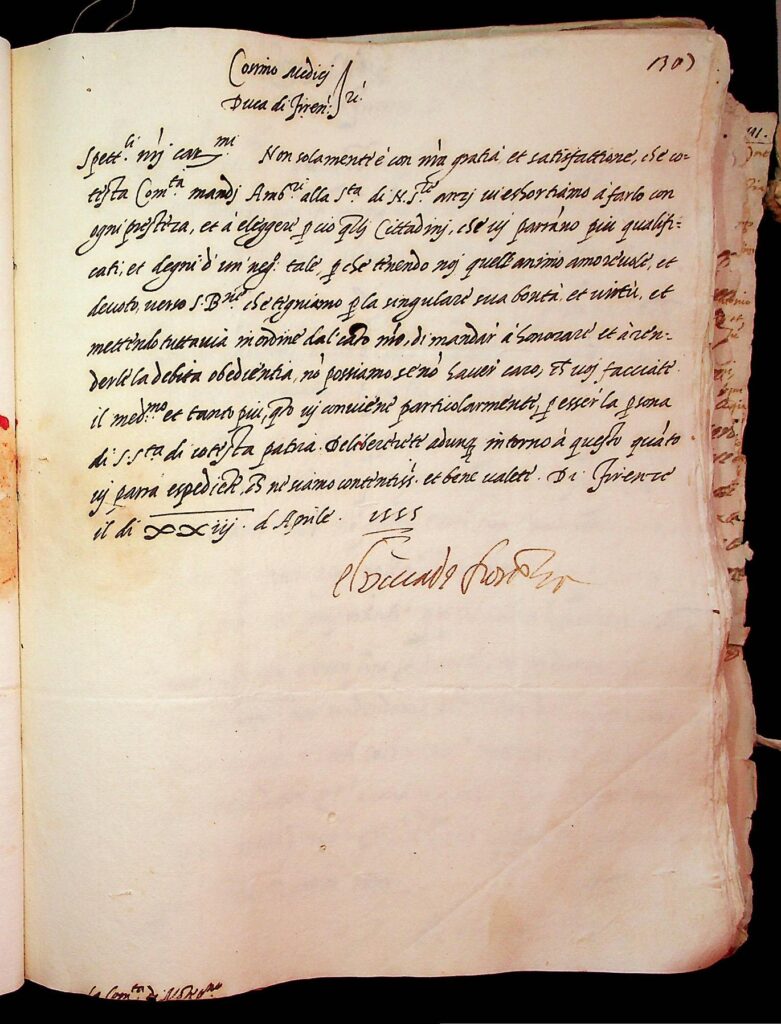 Cosimo Medicj
Duca di Firenᶻᵉ
1303
Spettˡⁱ mj carᵐⁱ Non solamente è con nr̃a gratia et satisfattione, che co-
testa Comᵗᵃ mandj Ambʳⁱ alla Sᵗᵃ di N. Sʳᵉ anzj vi eshortiamo à farlo con
ogni prestezza, et à eleggere ꝑ ciò q̃llj Cittadinj, che vj parrāno piu qualifi-
cati, et degni d'un' negᵒ tale, ꝑ che tenendo noj quell'animo amorevole, et
devoto, verso S. Bⁿᵉ che tegniamo ꝑ la singulare sua bontà, et virtù, et
mettendo tuttavia in ordine dal cāto nr̃o, di mandar' à honorare et à ren-
derle la debita obedientia, nō possiamo se nō haver caro, ch̃ voj facciate
il medᵐᵒ et tanto piu, q̃to vj conviene particolarmente, ꝑ esser' la ꝑsona
di S. Sᵗᵃ di cotesta patria. Delibererete adunq̃ intorno à questo quāto
vj parrà espediente, ch̃ ne siamo contentissⁱ. et bene valete. Di Firenze
il di XXiij. d'Aprile. 1555
el Duca di Fiorenza
La Comᵗᵃ di Mōtepᵘˡᶜⁿᵒ